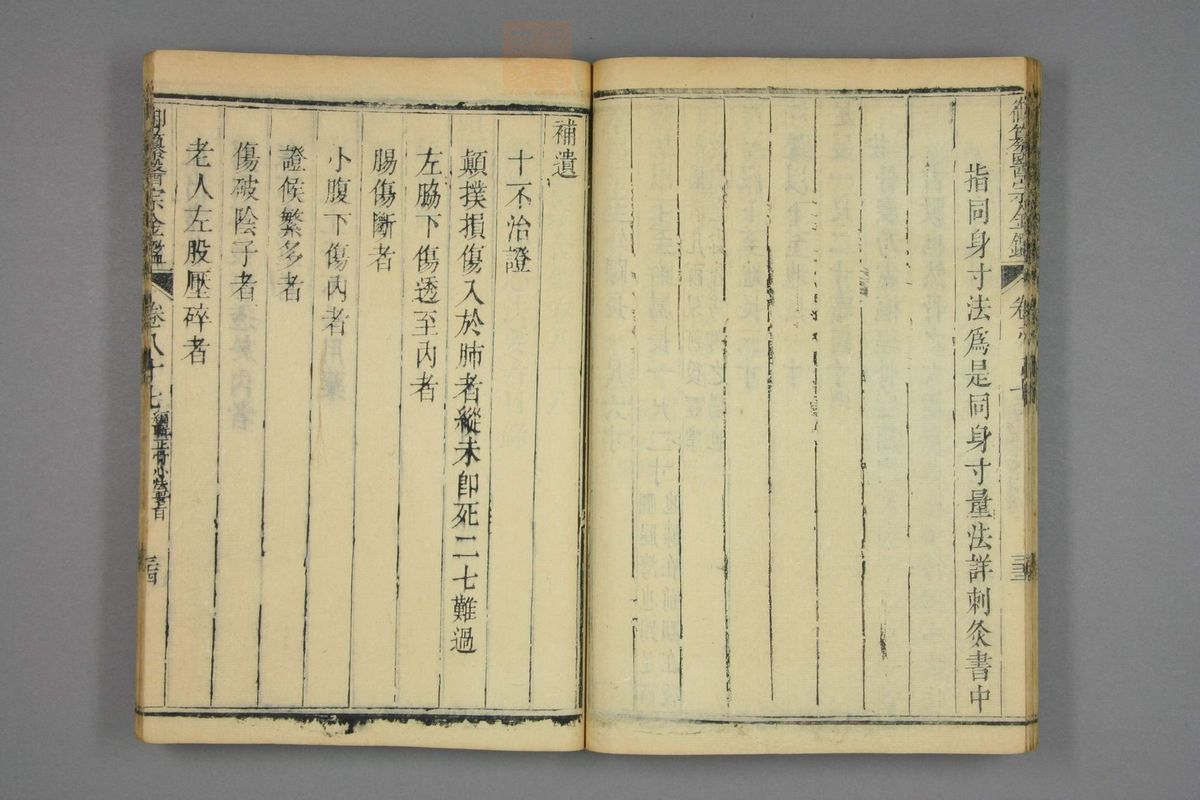 御纂醫宗金鑑
卷
三三
指同身寸法爲是同身寸量法詳刺灸書中
補遺
十不治證
顛撲損傷入於肺者縱未即死二七難過
左脇下傷透至內者
腸傷斷者
小腹下傷內者
證候繁多者
傷破陰子者
老人左股壓碎者
御纂醫宗金鑑
卷八十七
三四